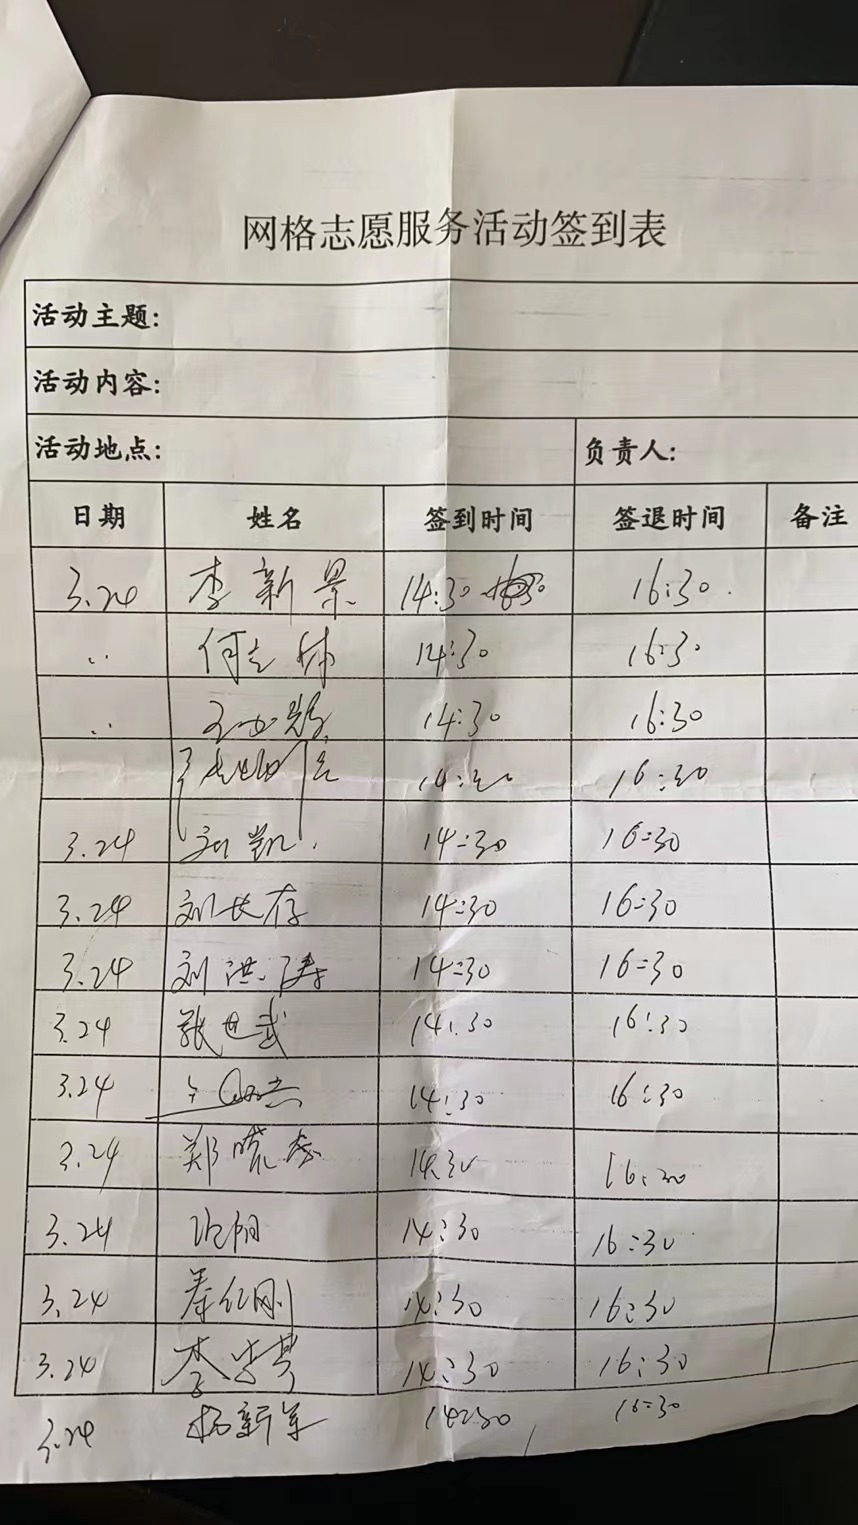 网格志愿服务活动签到表
活动主题:
活动内容:
活动地点: 负责人:
日期 姓名 签到时间 签退时间 备注
3.24 李新景 14:30 16:30
何志林 14:30 16:30
14:30 16:30
14:30 16:30
3.24 刘凯 14:30 16:30
3.24 刘长存 14:30 16:30
3.24 刘洪涛 14:30 16:30
3.24 张世武 14:30 16:30
3.24 14:30 16:30
3.24 郑 14:30 16:30
3.24 14:30 16:30
3.24 秦红刚 14:30 16:30
3.24 李 14:30 16:30
3.24 杨新军 14:30 16:30